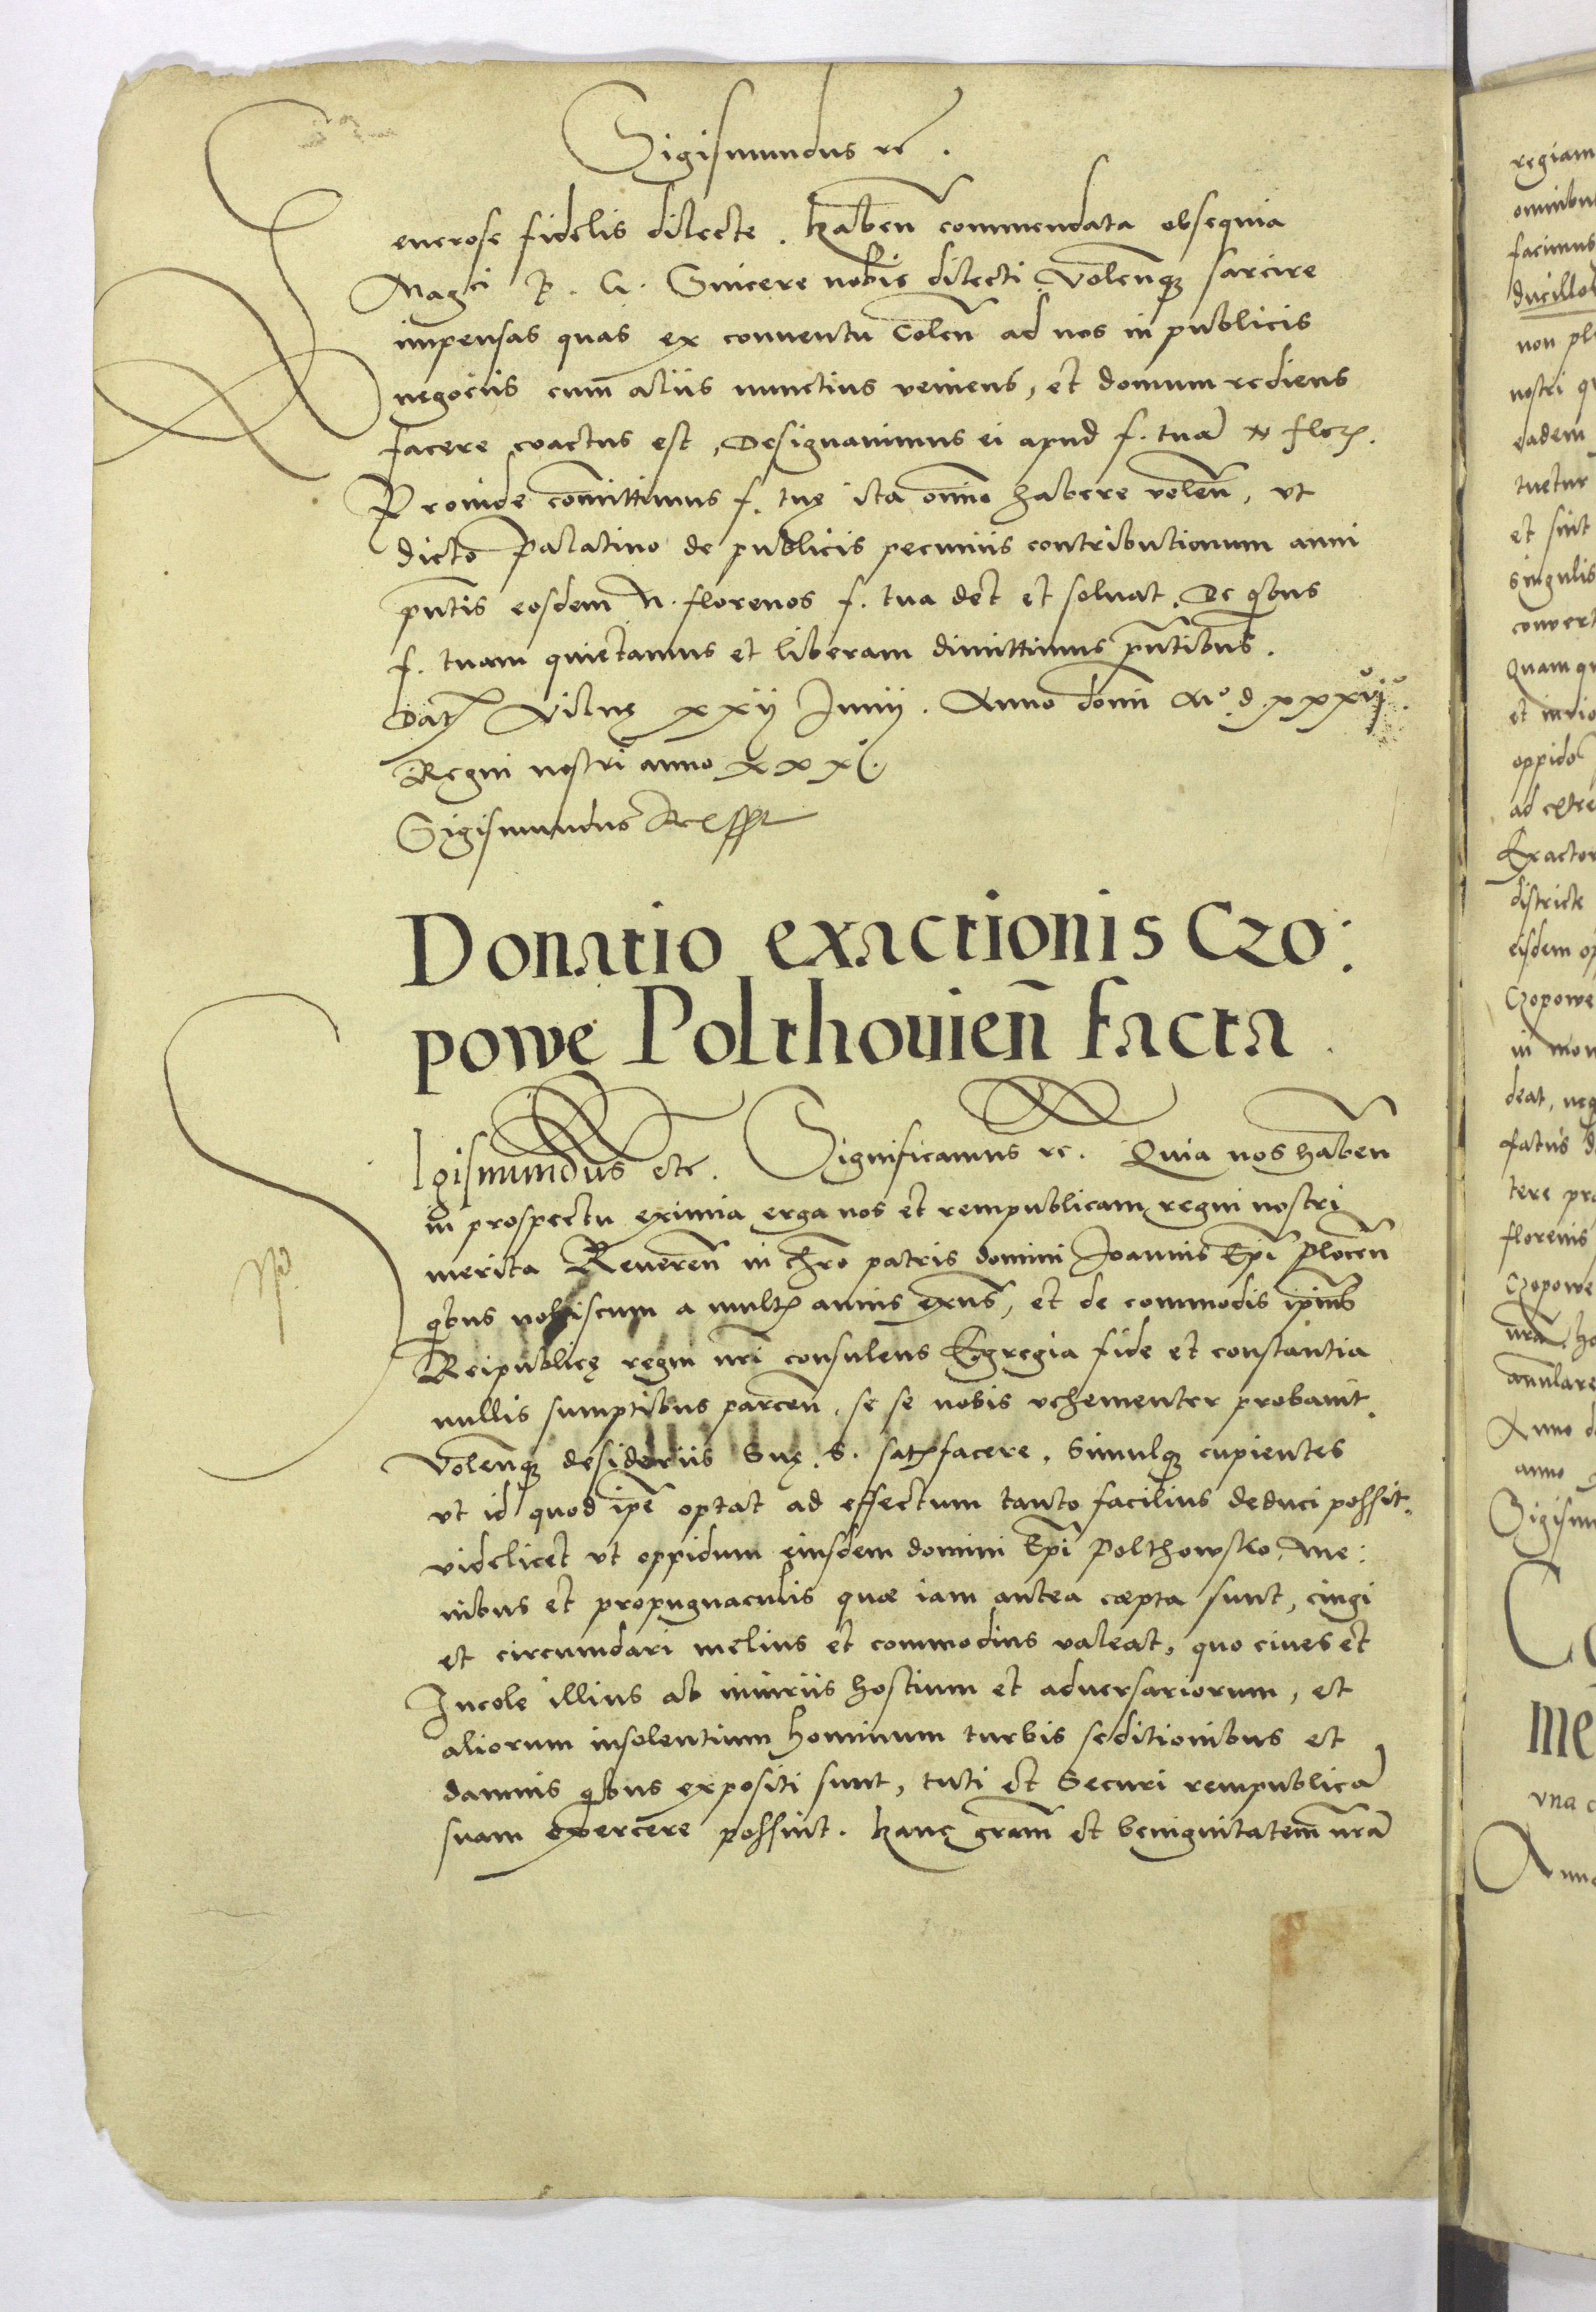 Sigismundus rc.
Generose fidelis dilecte. Haben̄ commendata obsequia
Magci P. G. Sincere nobis dilecti, Volen̄q sarcire
impensas quas ex conuentu Colen̄ ad nos in publicis
negociis cum̄ aliis nunctius veniens, et domum rediens
facere coactus est, Designauimus ei apud f. tuā N flor.
Proinde com̄ittimus f. tuę ita om̄no habere volen̄, vt
dicto Palatino de publicis pecuniis contributionum anni
pn̄tis eosdem N. florenos f. tua det et soluat. De qibus
f. tuam quietamus et liberam dimittimus pn̄tibus.
Dat Vilnę xxij Junij. Anno domi Mo. d. xxxvjo.
Regni nostri anno xxx.
Sigismundus Rex sst
Donatio exactionis Czo:
powę Polthouien̄ facta.
Sigismundus etc. Significamus rc. Quia nos haben̄
in prospectu eximia erga nos et rempublicam regni nostri
merita Reueren̄ in chr̄o patris domini Joannis Ep̄i Plocen̄
qibus nobiscum a mult annis exn̄s, et de commodis ip̄ius
Reipublicę regni nr̄i consulens Egregia fide et constantia
nullis sumptibus parcen̄, se se nobis vehementer probauit.
Volen̄q desideriis Suę. S. satfacere, Simulq cupientes
vt id quod ip̄e optat ad effectum tanto facilius deduci possit.
videlicet vt oppidum eiusdem domini Ep̄i Polthowsko, me:
nibus et propugnaculis quæ iam antea cæpta sunt, cingi
et circumdari melius et commodius valeat, quo ciues et
Incole illius ab iniuriis hostium et aduersariorum, et
aliorum insolentium hominum turbis seditionibus et
damnis qibus expositi sunt, tuti et Securi rempublicā
suam exercere possint. Hanc gram̄ et benignitatem nr̄ā
regiam
omnibu
facimus
ducillo
non pl
nostri q
eadem
tuetur
et sint
singulis
conuert
Quam qu
oppido
ad extre
Exactor
districte
eisdem op
Czopowe
in mon
deat, neq
tere pra
florenis
Czopowe
nrā ho
annulare
Anno d
anno
Sigism
Co
me
vna c
Anno